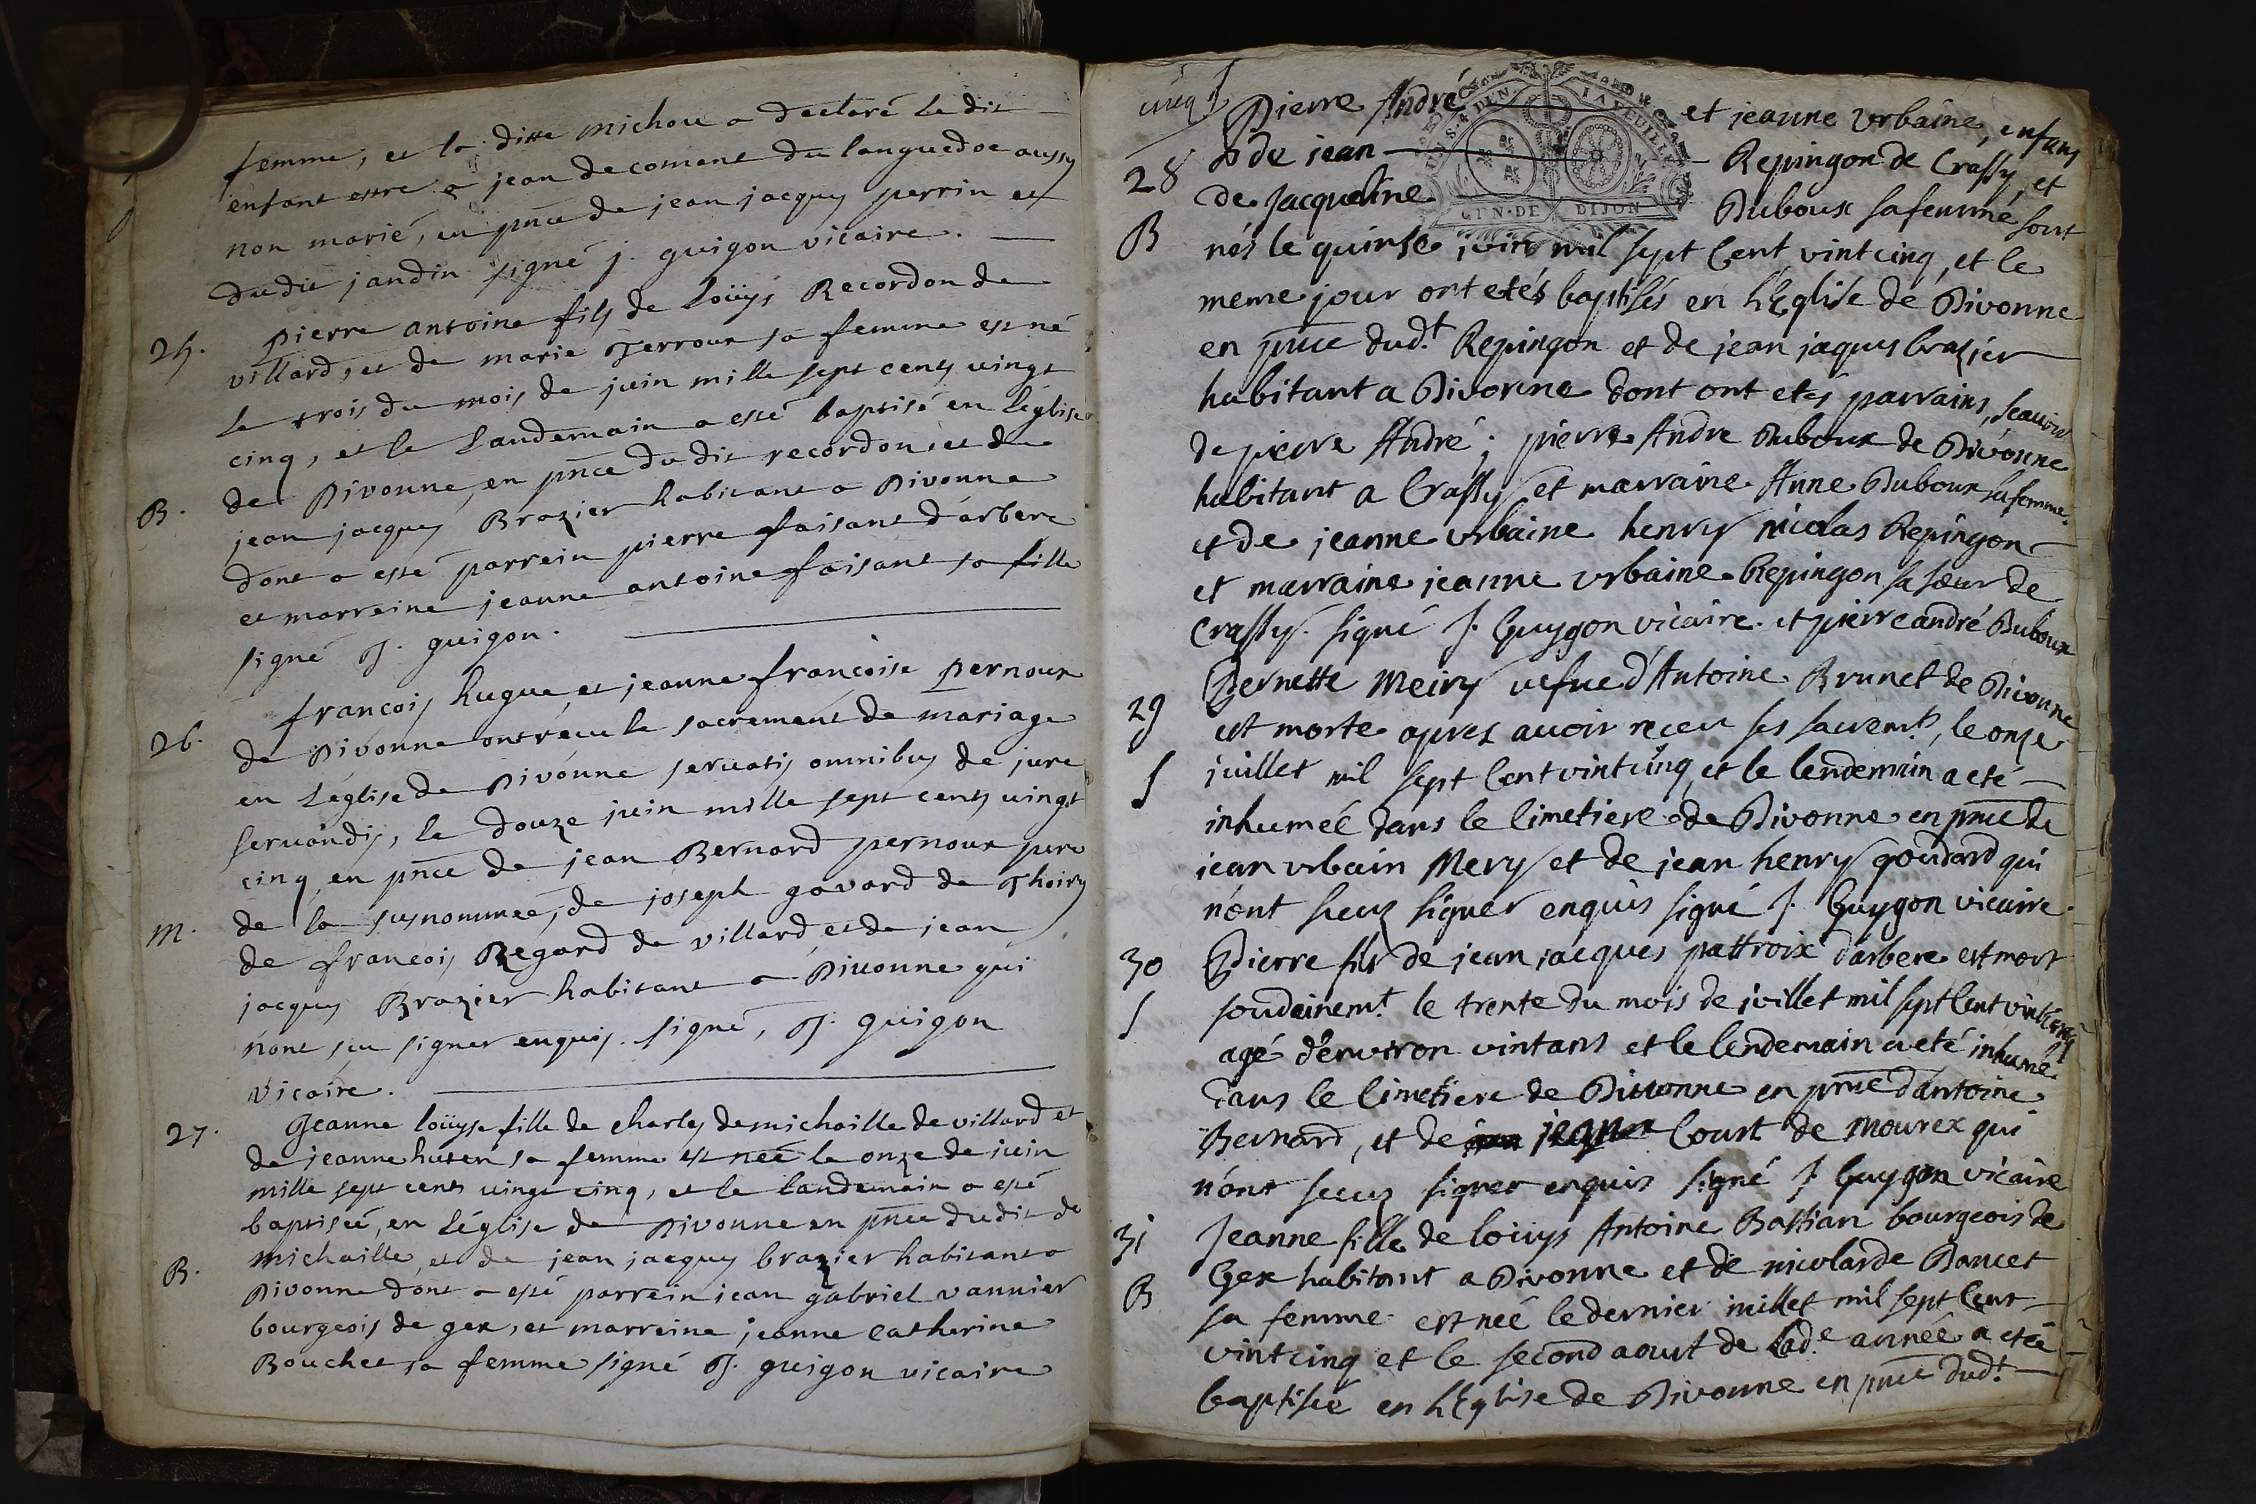 femme, et la ditte michou a declaré le dit
enfant estre a jean decoment du languedoc aussy
non marié, en pnce de jean jacques perrin et
dudit jandin signé j. guigon vicaire.
25. Pierre antoine fils de Loüys Recordon de
villard, et de marie Terroux sa femme est né
le trois du mois de juin mille sept cents vingt
cinq, et le Landemain a esté baptisé en L'église
B. de Divonne, en pnce du dit recordon, et de
jean jacques Brazier habitant a Divonne
dont a esté parrein pierre faisant d'arbere
et marreine jeanne antoine faisant sa fille
signé J. guigon.
26. francois hugue, et jeanne francoise pernoux
de Divonne ont recu le sacrement de mariage
en L'église de Divonne servatis omnibus de jure
servandis, le douze juin mille sept cents vingt
cinq, en pnce de jean Bernard pernoux pere
m. de la susnommeé, de joseph gavard de Thoiry
de francois Regard de villard, et de jean
jacques Brazier habitant a Divonne qui
n'ont scu signer enquis. signé, J. guigon
vicaire.
27. Jeanne loüyse fille de charles demichaille de villard et
de jeanne huten sa femme est neé le onze de juin
mille sept cents vingt cinq, et le landemain a esté
baptiseé, en L'église de Divonne en pnce dudit de
B. michaille, et de jean jacques brazier habitant a
Divonne dont a esté parrein jean gabriel vannier
bourgeois de gex, et marreine jeanne catherine
Bouchet sa femme signé J. guigon vicaire
cinq
Pierre André et jeanne Vrbaine, enfans
28 de jean Repingon de Crassy et
de Jacqueline Duboux sa femme sont
GEN·DE DIJON
B nés le quinse juin mil sept Cent vintcinq, et le
meme jour ont etés baptisés en l'Eglise de Divonne
en pnce dud.t Repingon et de jean jaques brazier
habitant a Divonne dont ont etés parrains, scauoir
de pierre André; pierre Andre Duboux de Divonne
habitant a Crassy et marraine Anne Duboux sa femme.
et de jeanne vrbaine henry nicolas Repingon
et marraine jeanne vrbaine Repingon sa sœur de
Crassy. signé J. Guygon vicaire. et pierre andré Duboux
29 Pernette Meiry vefue d'Antoine Brunet de Divonne
est morte apres auoir receu ses sacrem.ts, le onze
S juillet mil sept Cent vintcinq, et le lendemain a eté
inhumeé dans le Cimetiere de Divonne en pnce de
jean vrbain Mery et de jean henry goudard qui
n'ont sceuz signer enquis signé J. Guygon vicaire.
30 Pierre fils de jean jacques pattroix d'arbere est mort
S soudainem.t le trente du mois de juillet mil sept Cent vintcinq
agé d'environ vint ans et le lendemain a eté inhumé
dans le Cimetiere de Divonne en pnce d'antoine
Bernard, et de Court de Mourex qui
n'ont sceuz signer enquis signé J. Guygon vicaire
31 Jeanne fille de loüys Antoine Bastian bourgeois de
B Gex habitant a Divonne et de nicolarde Dancet
sa femme est neé le dernier juillet mil sept Cent
vintcinq et le second aoust de lad.e anneé a eteé
baptiseé en l'Eglise de Divonne en pnce dud.t